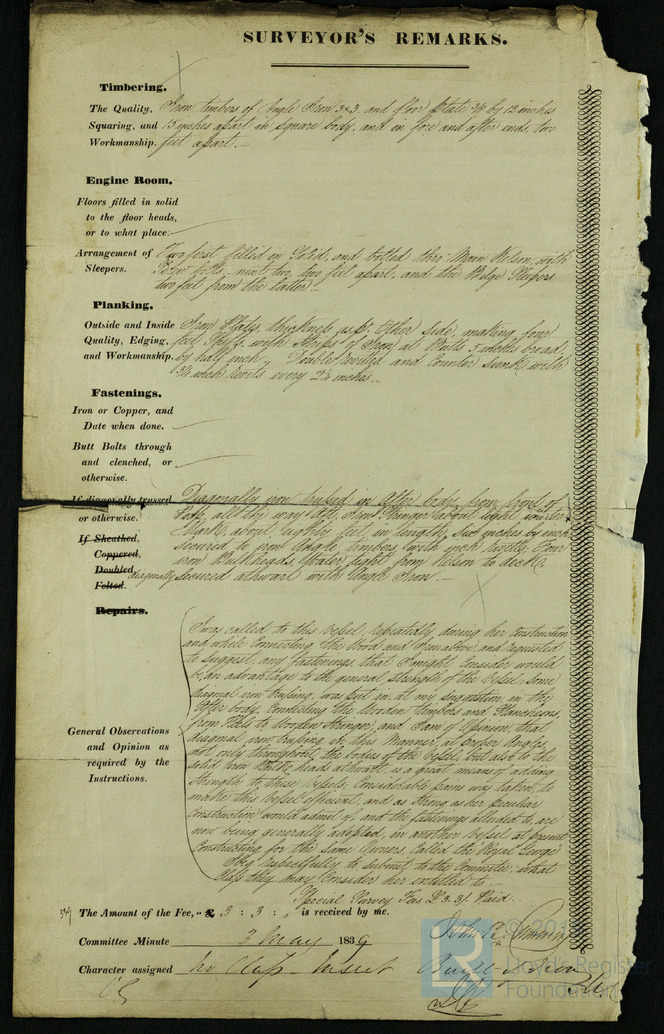 SURVEYOR'S REMARKS.
Timbering.
The Quality, Iron timbers of Angle Iron 3x3, and floor plate 3/8 by 12 inches
Squaring, and 15 inches apart in square body, and in fore and after ends, two
Workmanship. feet apart.—
Engine Room.
Floors filled in solid
to the floor heads,
or to what place.—
Arrangement of Two first filled in Solid, and bolted thro' Main Kelson, with
Sleepers. Screw bolts, next two, two feet apart, and the Bilge Sleepers
two feet from the latter.—
Planking.
Outside and Inside Iron Plates, thickness as pr. other side, making four
Quality, Edging, feet Shifts, with Straps of Iron at Butts 5 inches broad,
and Workmanship. by half inch. Double riveted and Counter sunk with
3/4 inch rivets every 2 1/4 inches.—
Fastenings.
Iron or Copper, and
Date when done.
Butt Bolts through
and clenched, or
otherwise.
If diagonally trussed Diagonally iron trussed in after body, from
or otherwise. all the way aft. Iron Stringer about light water
If Sheathed, Mark, about eighty feet in length, by inch
Coppered, secured to iron Angle timbers with inch rivets. Four
Doubled, iron Bulkheads, Water tight from Kelson to deck,
Felted. diagonally secured athwart with Angle Iron.—
Repairs.
I was called to this Vessel, repeatedly during her Construction
and while Connecting the Wood and Iron above, and requested
to suggest, any fastenings, that I might Consider would
be an advantage to the general strength of the Vessel; some
diagonal iron trussing, was put in at my suggestion in the
Upper body, Connecting the Wooden timbers and Stanchions,
from to Wooden Stringer, and I am of Opinion, that
General Observations diagonal iron trussing in this Manner, at proper Angles,
and Opinion as not only throughout the bodies of the Vessel, but also to the
required by the solid Iron Bulk heads athwart, is a great means of adding
Instructions. strength to these Vessels. Considerable pains was taken, to
make this Vessel efficient, and as strong as her peculiar
Construction would admit of, and the fastenings alluded to, are
now being generally adopted, in another Vessel at present
Constructing for the same Owners, Called the Royal George
I beg respectfully to submit to the Committee, what
Class they may Consider her entitled to.—
Special Survey Fee £3.3/. Paid
The Amount of the Fee, £ 3 : 3 : „ is received by me.
Committee Minute 3 May 1839
Character assigned No Class Insert Built of Iron
© 201
LR
Lloyd's Register
Foundation